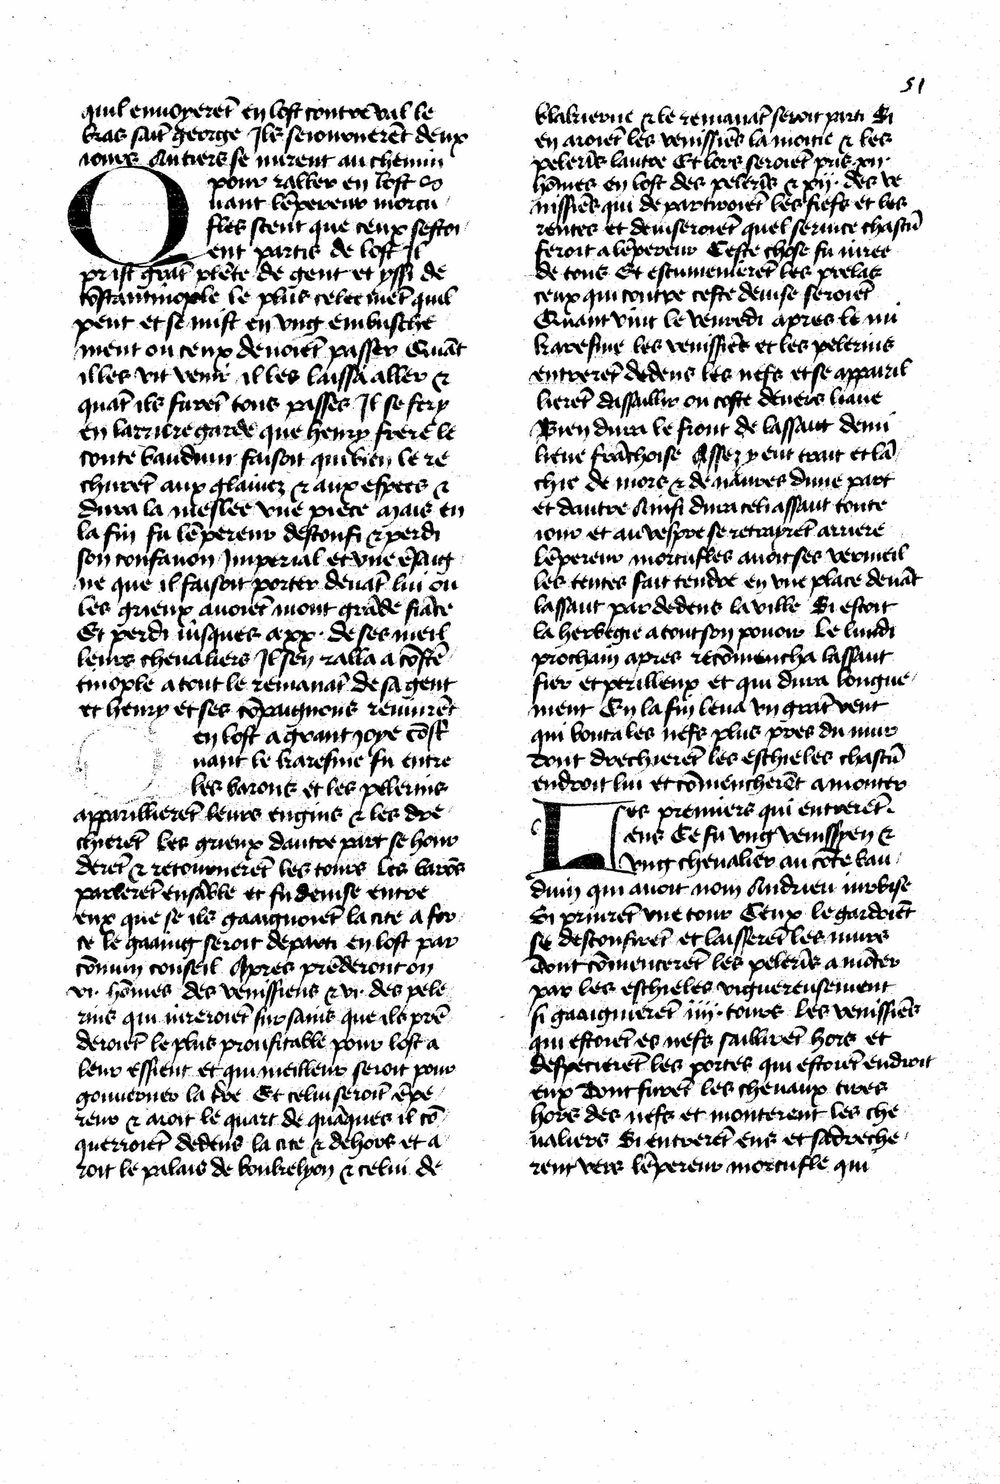 51
quil enuoyerēt en lost contre val le
bras sait george Ils seiournerēt deux
iours Au tiers se mirent au chemin
pour raller en lost
Quant lēpereur morcu
fles sceut que ceux seſtoi
ent partis de lost Il
prist grāt plēte de gent et yssi de
cōstantinople le plus celeemēt quil
peut et se mist en vng embusche
ment ou ceux deuoiēt passer Quāt
il les vit venir il les laissa aller &
quāt ils furēt tous passes Il se fery
en larriere garde que henry frere le
conte bauduin faisoit qui bien le re
churēt aux glaiues & aux espees &
dura la meslee vne piece mais en
la fin fu lēpereur desconfi & perdi
son confanon Imperial et vne ēsaig
ne que il faisoit porter deuāt lui ou
les grieux auoiēt mont grāde fiāce
Et perdi iusques a xx. de ses meil
leurs cheualiers Il sen ralla a cōstē
tinople a tout le remanāt de sa gent
et henry et ses cōpaignons reuinrēt
en lost a grant ioye cōst
uant le karesme fu entre
les barons et les pelerins
apparillierēt leurs engins & les dre
chierēt les grieux dautre part se hour
derēt & retournerēt les tours les barōs
parlerēt ensāble et fu deuise entre
eux que se ils gaaignoiēt la cite a for
ce le gaaing seroit departi en lost par
cōmun conseil Apres prēderont on
vi. hōmes des venissiens & vi. des pele
rins qui iureroiēt sur sains que ils prē
deroiēt le plus proufitable pour lost a
leur essient et qui meilleur seroit pour
gouuerner la tre Et celui seroit ēpe
reur & aroit le quart de quāques il cō
querroiēt dedens la cite & dehors et a
roit le palais de boukelyon & celui de
blakerne & le remanāt seroit parti Si
en aroiēt les venissiēs la moitie & les
pelerīs lautre Et lors seroiēt pris xii.
hōmes en lost des pelerīs & xii. des ve
nissiēs qui departiroiēt les fiefs et les
rentes et deuiseroiēt quel seruice chascū
feroit a lēpereur Ceste chose fu iuree
de tous Et escumenierēt les prelas
ceux qui contre ceste deuise seroiēt
Quant vint le venredi apres le mi
karesme les venissiēs et les pelerins
entrerēt dedens les nefs et se apparil
lierēt dassaillir ou coste deuers liaue
Bien dura le front de lassaut demi
lieue frāchoise Assez y eut trait et lā
chie de mors & de naures dune part
et dautre Ainsi dura celi assaut toute
iour et au vespre se retrayrēt arriere
Lēpereur morcufles auoit ses vermeil
les tentes fait tendre en vne place deuāt
lassaut par dedens la ville Si estoit
la herbegie a tout son pouoir Le lundi
prochain apres recōmencha lassaut
fier et perilleux et qui dura longue
ment En la fin leua vn grāt vent
qui bouta les nefs plus pres du mur
Dont drechierēt les eschieles chascū
endroit lui et cōmencherēt a monter
Les premiers qui entrerēt
ens Ce fu vng venissyen &
vng cheualier au cōte bau
duin qui auoit nom Andrieu iurbise
Si prinrēt vne tour Ceux le gardoiēt
se desconfirēt et laisserēt les murs
Dont cōmencerēt les pelerīs a mōter
par les eschieles viguereusement
si gaaignierēt iiii. tours Les venissiēs
qui estoiēt es nefs saillirēt hors et
despecierēt les portes qui estoiēt endroit
eux Dont furēt les cheuaux tires
hors des nefs et monterent les che
ualiers Si entrerēt ens et sadreche
rent vers lēpereur morcufle qui